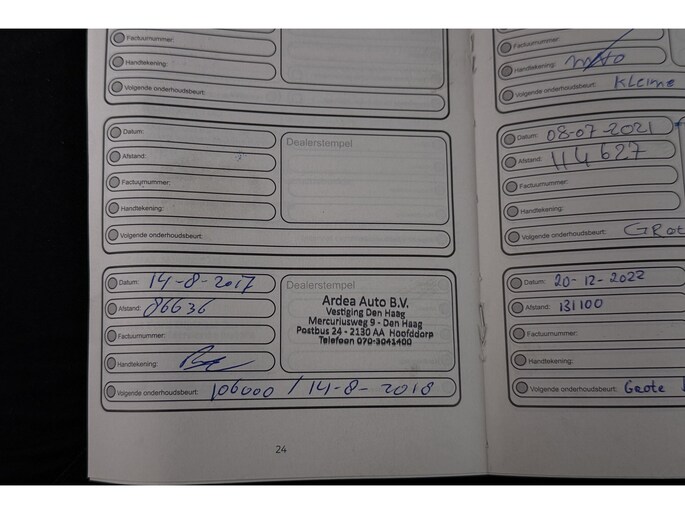 Factuurnummer:
Handtekening:
Volgende onderhoudsbeurt:
Datum:
Afstand:
Factuurnummer:
Handtekening:
Volgende onderhoudsbeurt:
Dealerstempel
Datum: 14-8-2017
Afstand: 86636
Factuurnummer:
Handtekening:
Volgende onderhoudsbeurt: 106000 / 14-8-2018
Dealerstempel
Ardea Auto B.V.
Vestiging Den Haag
Mercuriusweg 9 - Den Haag
Postbus 24 - 2130 AA Hoofddorp
Telefoon 070-3041400
24
Factuurnummer:
Handtekening:
Volgende onderhoudsbeurt: Kleine
Datum: 08-07-2021
Afstand: 114627
Factuurnummer:
Handtekening:
Volgende onderhoudsbeurt: Grot
Datum: 20-12-2022
Afstand: 131100
Factuurnummer:
Handtekening:
Volgende onderhoudsbeurt: Grote